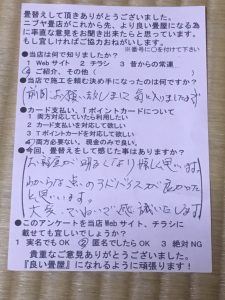 畳替えして頂きありがとうございました。
ニブヤ畳店がこれから先、より良い畳屋になる為
に率直な意見をお聞き出来たらと思っています。
もし宜しければご協力おねがいします。
※番号に○を付けて下さい
●当店は何で知りましたか?
1 Webサイト 2 チラシ 3 昔からの常連
4 ご紹介、その他(
●当店で施工を頼む決め手になったのは何ですか?
前回お願い致しまして気に入りましたので
●カード支払い、Tポイントカードについて
1 両方対応していたら利用したい
2 カード支払いを対応して欲しい
3 Tポイントカードを対応して欲しい
4 両方必要ない。現金のみで良い。
●今回、畳替えをして感じた事はありますか?
お部屋が明るくなり嬉しく思います。
わからない点のアドバイスが良かった
と思います。
大変ていねいで感謝いたします
●このアンケートを当店Webサイト、チラシに
載せても宜しいでしょうか?
1 実名でもOK ② 匿名でしたらOK 3 絶対NG
貴重なご意見ありがとうございました。
『良い畳屋』になれるように頑張ります!